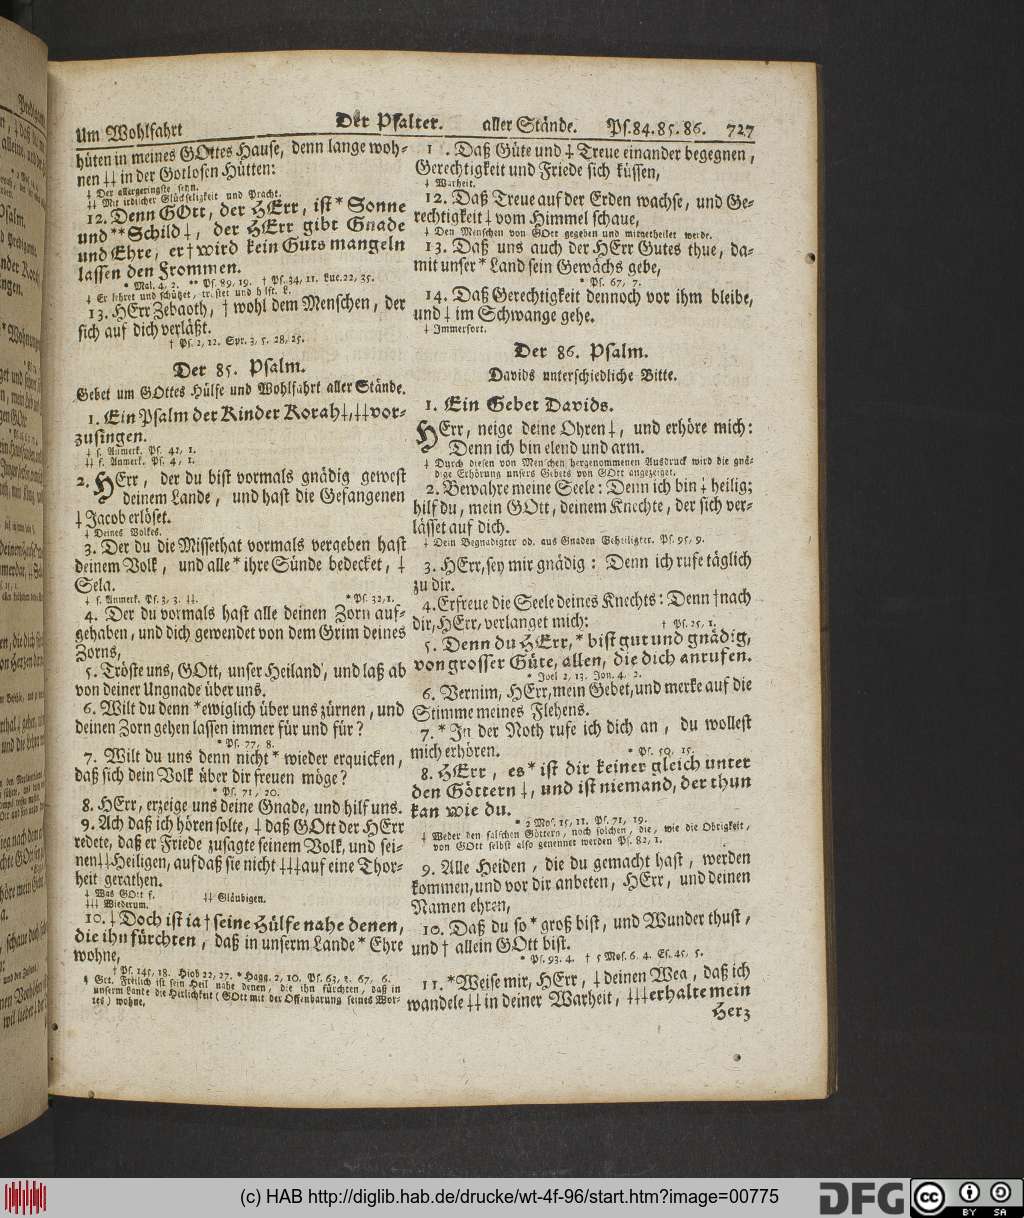 Um Wohlfahrt Der Psalter. aller Stände. Ps. 84. 85. 86. 727
hüten in meines GOttes Hause, denn lange woh-
nen ‡‡ in der Gotlosen Hütten:
‡ Der allergeringste seyn.
‡‡ Mit irdischer Glückseligkeit und Pracht.
12. Denn GOtt, der HErr, ist * Sonne
und ** Schild ‡, der HErr gibt Gnade
und Ehre, er † wird kein Guts mangeln
lassen den Frommen.
* Mal. 4, 2. ** Ps. 89, 19. † Ps. 34, 11. Luc. 22, 35.
‡ Er lehret und schützet, tröstet und hilft. L.
13. HErr Zebaoth, † wohl dem Menschen, der
sich auf dich verläßt.
† Ps. 2, 12. Spr. 3, 5. 28, 25.
Der 85. Psalm.
Gebet um GOttes Hülfe und Wohlfahrt aller Stände.
1. Ein Psalm der Kinder Korah ‡, ‡‡ vor-
zusingen.
‡ s. Anmerk. Ps. 42, 1.
‡‡ s. Anmerk. Ps. 4, 1.
2. HErr, der du bist vormals gnädig gewest
deinem Lande, und hast die Gefangenen
‡ Jacob erlöset.
‡ Deines Volkes.
3. Der du die Missethat vormals vergeben hast
deinem Volk, und alle * ihre Sünde bedecket, ‡
Sela.
‡ s. Anmerk. Ps. 3, 3. ‡‡. * Ps. 32, 1.
4. Der du vormals hast alle deinen Zorn auf-
gehaben, und dich gewendet von dem Grim deines
Zorns,
5. Tröste uns, GOtt, unser Heiland, und laß ab
von deiner Ungnade über uns.
6. Wilt du denn * ewiglich über uns zürnen, und
deinen Zorn gehen lassen immer für und für?
* Ps. 77, 8.
7. Wilt du uns denn nicht * wieder erquicken,
daß sich dein Volk über dir freuen möge?
* Ps. 71, 20.
8. HErr, erzeige uns deine Gnade, und hilf uns.
9. Ach daß ich hören solte, ‡ daß GOtt der HErr
redete, daß er Friede zusagte seinem Volk, und sei-
nen ‡‡ Heiligen, auf daß sie nicht ‡‡‡ auf eine Thor-
heit gerathen.
‡ Was GOtt s. ‡‡ Gläubigen.
‡‡‡ Wiederum.
10. ‡ Doch ist ja † seine Hülfe nahe denen,
die ihn fürchten, daß in unserm Lande * Ehre
wohne,
† Ps. 145, 18. Hiob 22, 27. * Hagg. 2, 10. Ps. 63, 3. 67, 6.
‡ Grt. Freilich ist sein Heil nahe denen, die ihn fürchten, daß in
unserm Lande die Herlichkeit (GOtt mit der Offenbarung seines Wor-
tes) wohne,
11. Daß Güte und ‡ Treue einander begegnen,
Gerechtigkeit und Friede sich küssen,
‡ Warheit.
12. Daß Treue auf der Erden wachse, und Ge-
rechtigkeit ‡ vom Himmel schaue,
‡ Den Menschen von GOtt gegeben und mitgetheilet werde.
13. Daß uns auch der HErr Gutes thue, da-
mit unser * Land sein Gewächs gebe,
* Ps. 67, 7.
14. Daß Gerechtigkeit dennoch vor ihm bleibe,
und ‡ im Schwange gehe.
‡ Immerfort.
Der 86. Psalm.
Davids unterschiedliche Bitte.
1. Ein Gebet Davids.
HErr, neige deine Ohren ‡, und erhöre mich:
Denn ich bin elend und arm.
‡ Durch diesen von Menschen hergenommenen Ausdruck wird die gnä-
dige Erhörung unsers Gebets von GOtt angezeiget.
2. Bewahre meine Seele: Denn ich bin ‡ heilig;
hilf du, mein GOtt, deinem Knechte, der sich ver-
lässet auf dich.
‡ Dein Begnadigter od. aus Gnaden Geheiligter. Ps. 95, 9.
3. HErr, sey mir gnädig: Denn ich rufe täglich
zu dir.
4. Erfreue die Seele deines Knechts: Denn † nach
dir, HErr, verlanget mich: † Ps. 25, 1.
5. Denn du HErr, * bist gut und gnädig,
von grosser Güte, allen, die dich anrufen.
* Joel 2, 13. Jon. 4, 2.
6. Vernim, HErr, mein Gebet, und merke auf die
Stimme meines Flehens.
7. * In der Noth rufe ich dich an, du wollest
mich erhören. * Ps. 50, 15.
8. HErr, es * ist dir keiner gleich unter
den Göttern ‡, und ist niemand, der thun
kan wie du.
* 2 Mos. 15, 11. Ps. 71, 19.
‡ Weder den falschen Göttern, noch solchen, die, wie die Obrigkeit,
von GOtt selbst also genennet werden Ps. 82, 1.
9. Alle Heiden, die du gemacht hast, werden
kommen, und vor dir anbeten, HErr, und deinen
Namen ehren,
10. Daß du so * groß bist, und Wunder thust,
und † allein GOtt bist.
* Ps. 93, 4. † 5 Mos. 6, 4. Es. 45, 5.
11. * Weise mir, HErr, ‡ deinen Weg, daß ich
wandele ‡‡ in deiner Warheit, ‡‡‡ erhalte mein
Herz
(c) HAB http://diglib.hab.de/drucke/wt-4f-96/start.htm?image=00775
DFG cc BY SA